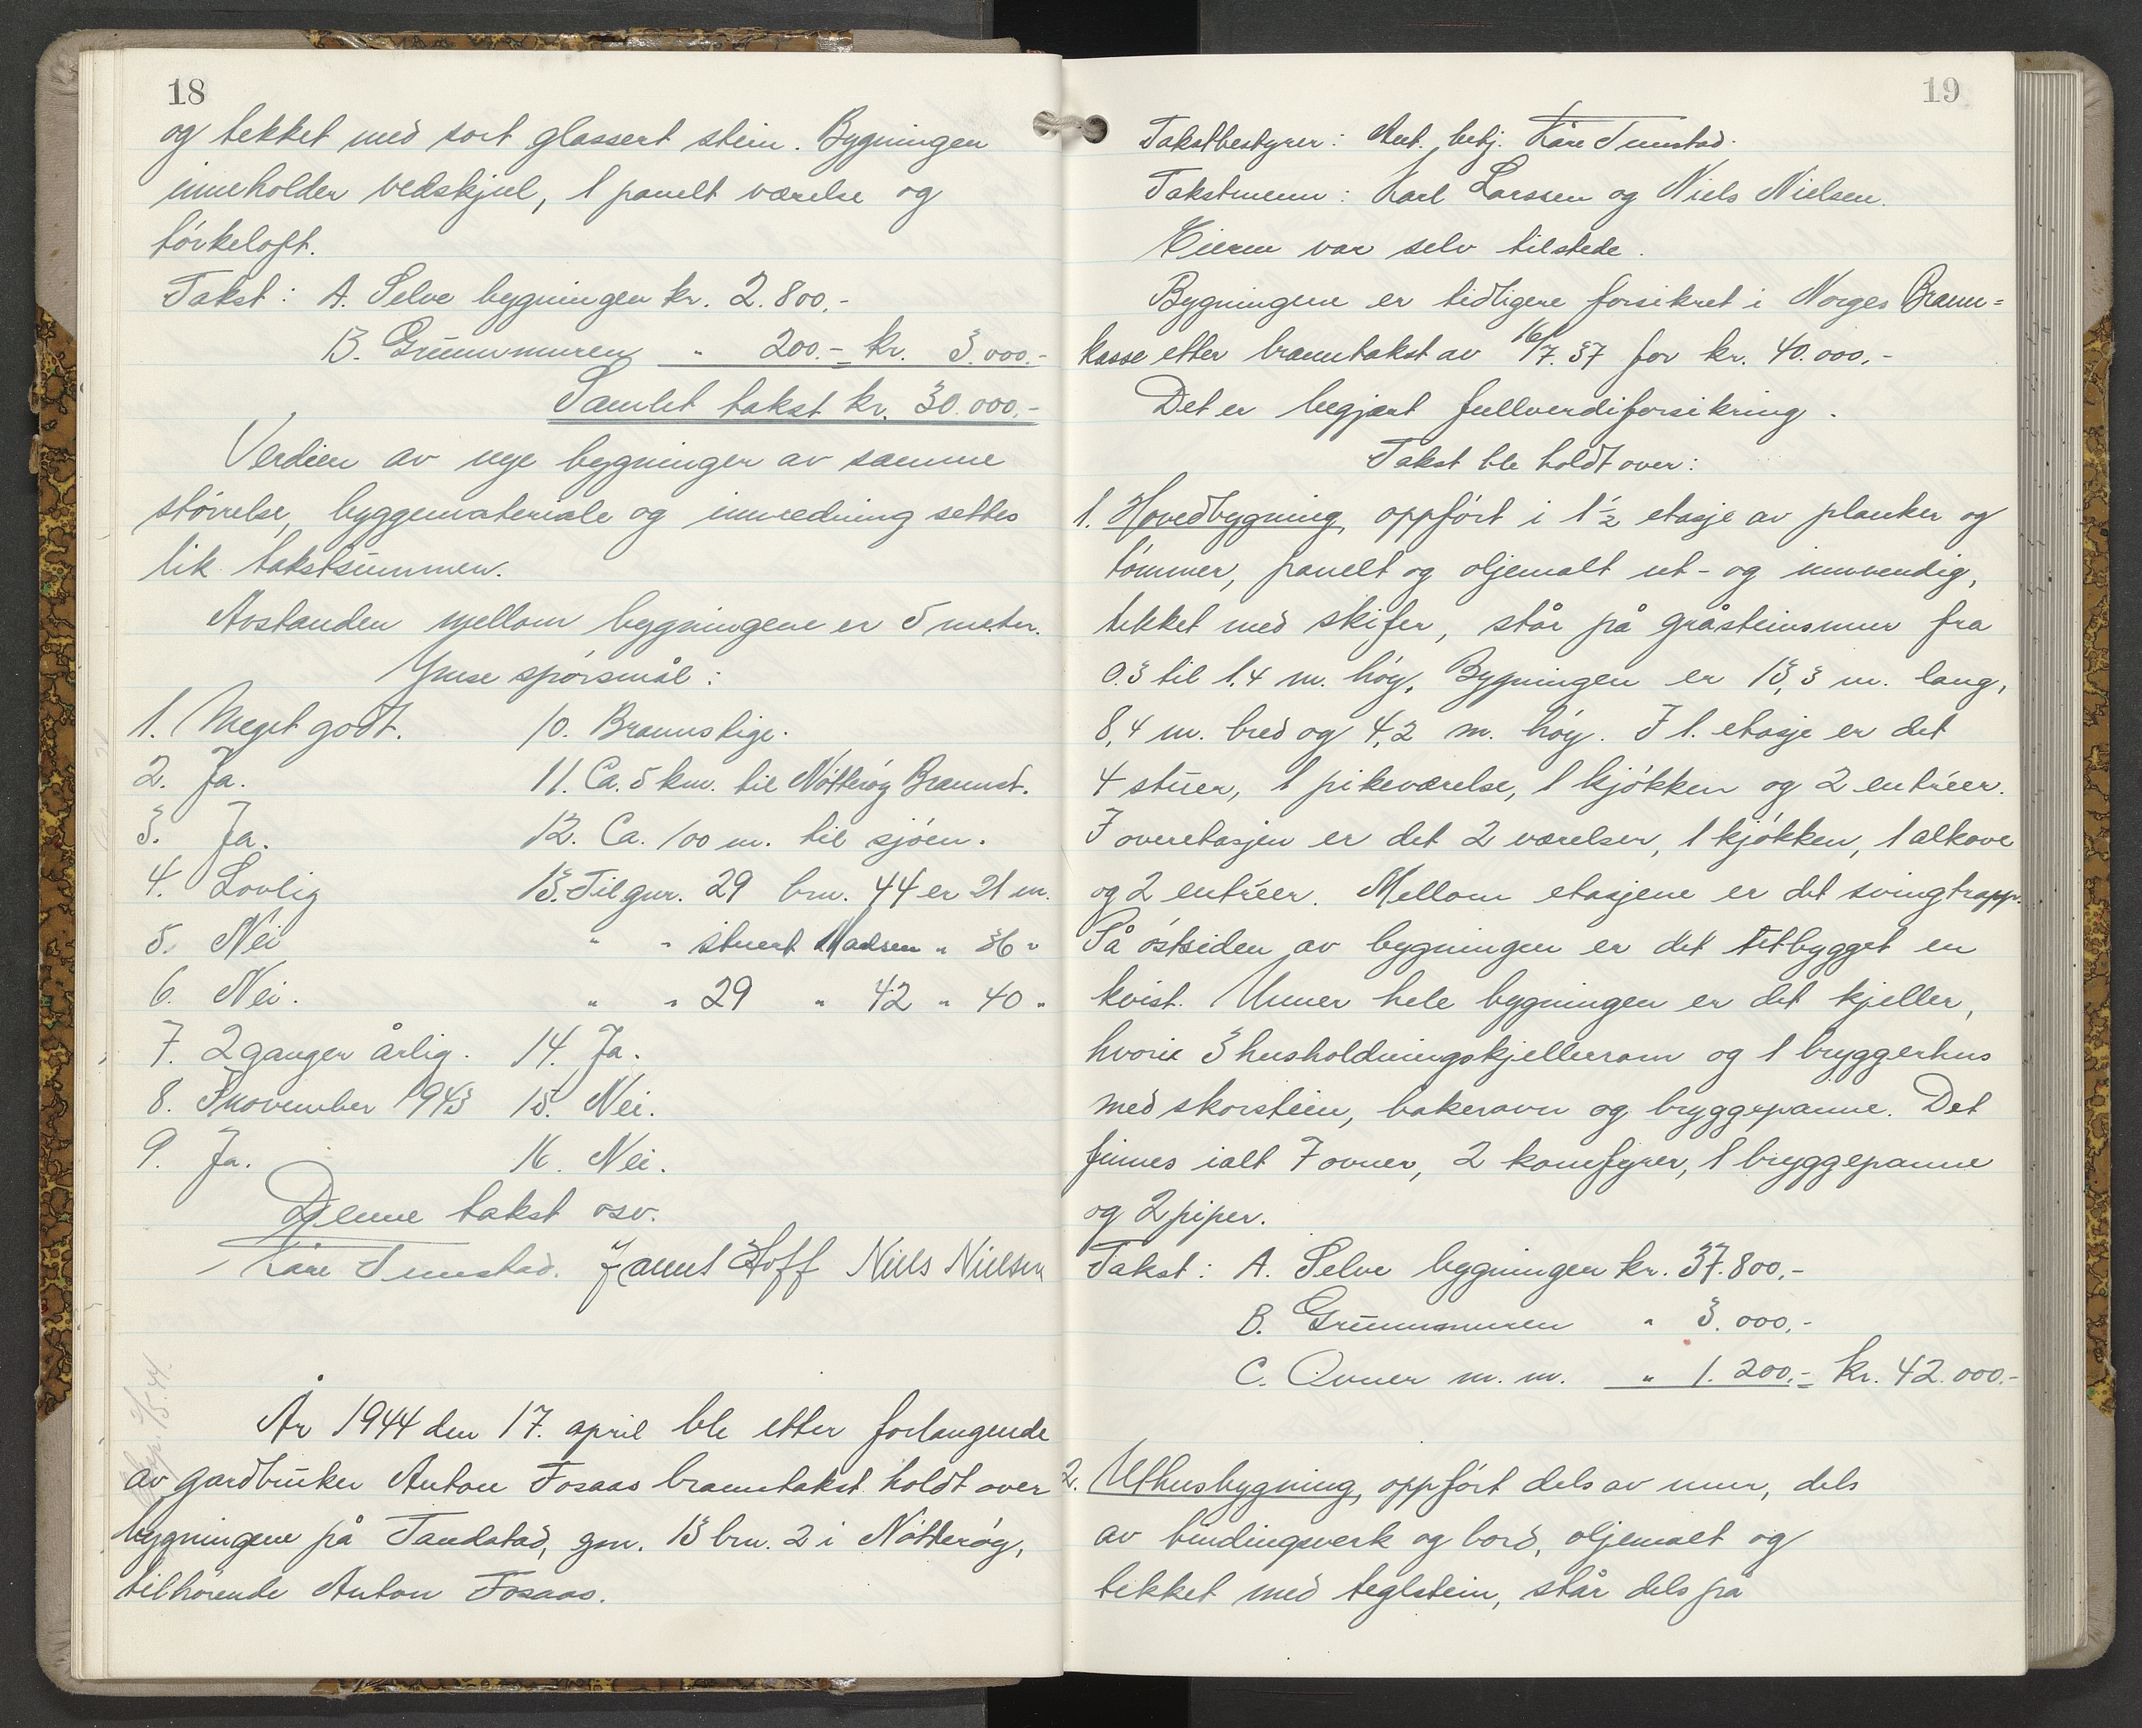 18
og tekket med sort glassert stein. Bygningen
inneholder vedskjul, 1 panelt værelse og
törkeloft.
Takst: A. Selve bygningen kr. 2.800,-
B. Grunnmuren " 200.- kr. 3.000.-
Samlet takst kr. 30.000,-
Verdien av nye bygninger av samme
störrelse, byggemateriale og innredning settes
lik takstsummen.
Avstanden mellom bygningene er 5 meter.
Ymse spörsmål:
1. Meget godt. 10. Brannstige.
2. Ja. 11. Ca. 5 km. til Nötteröy Brannst.
3. Ja. 12. Ca. 100 m. til sjöen.
4. Lovlig 13. Til gnr. 29 brn. 44 er 21 m.
5. Nei " " stuert Madsen " 36 "
6. Nei. " " 29 " 42 " 40 "
7. 2 ganger årlig. 14. Ja.
8. I november 1943 15. Nei.
9. Ja. 16. Nei.
Denne takst osv.
Kåre Tunstad. Hoff Niels Nielsen
År 1944 den 17. april ble etter forlangende
av gardbruker Anton Fosaas branntakst holdt over
bygningene på Tandstad, gnr. 13 brn. 2 i Nötteröy,
tilhörende Anton Fosaas.
19
Takstbestyrer: Aut. betj. Kåre Tunstad.
Takstmenn: Karl Larssen og Niels Nielsen.
Eieren var selv tilstede.
Bygningene er tidligere forsikret i Norges Brann=
kasse etter branntakst av 16/7.37 for kr. 40.000,-
Det er begjært fullverdiforsikring.
Takst ble holdt over:
1. Hovedbygning, oppfört i 1 1/2 etasje av planker og
tömmer, panelt og oljemalt ut- og innvendig,
tekket med skifer, står på gråsteinsmur fra
0.3 til 1.4 m. höy. Bygningen er 13,3 m. lang,
8,4 m. bred og 4,2 m. höy. I 1. etasje er det
4 stuer, 1 pikeværelse, 1 kjökken og 2 entréer.
I overetasjen er det 2 værelser, 1 kjökken, 1 alkove
og 2 entréer. Mellom etasjene er det svingtrapp.
På östsiden av bygningen er det tilbygget en
kvist. Unner hele bygningen er det kjeller,
hvorii 3 husholdningskjellerrom og 1 bryggerhus
med skorstein, bakerovn og bryggepanne. Det
finnes ialt 7 ovner, 2 komfyrer, 1 bryggepanne
og 2 piper.
Takst: A. Selve bygningen kr. 37.800,-
B. Grunnmuren " 3.000,-
C. Ovner m. m. " 1.200,- kr. 42.000.-
2. Uthusbygning, oppfört dels av mur, dels
av bindingsverk og bord, oljemalt og
tekket med teglstein, står dels på